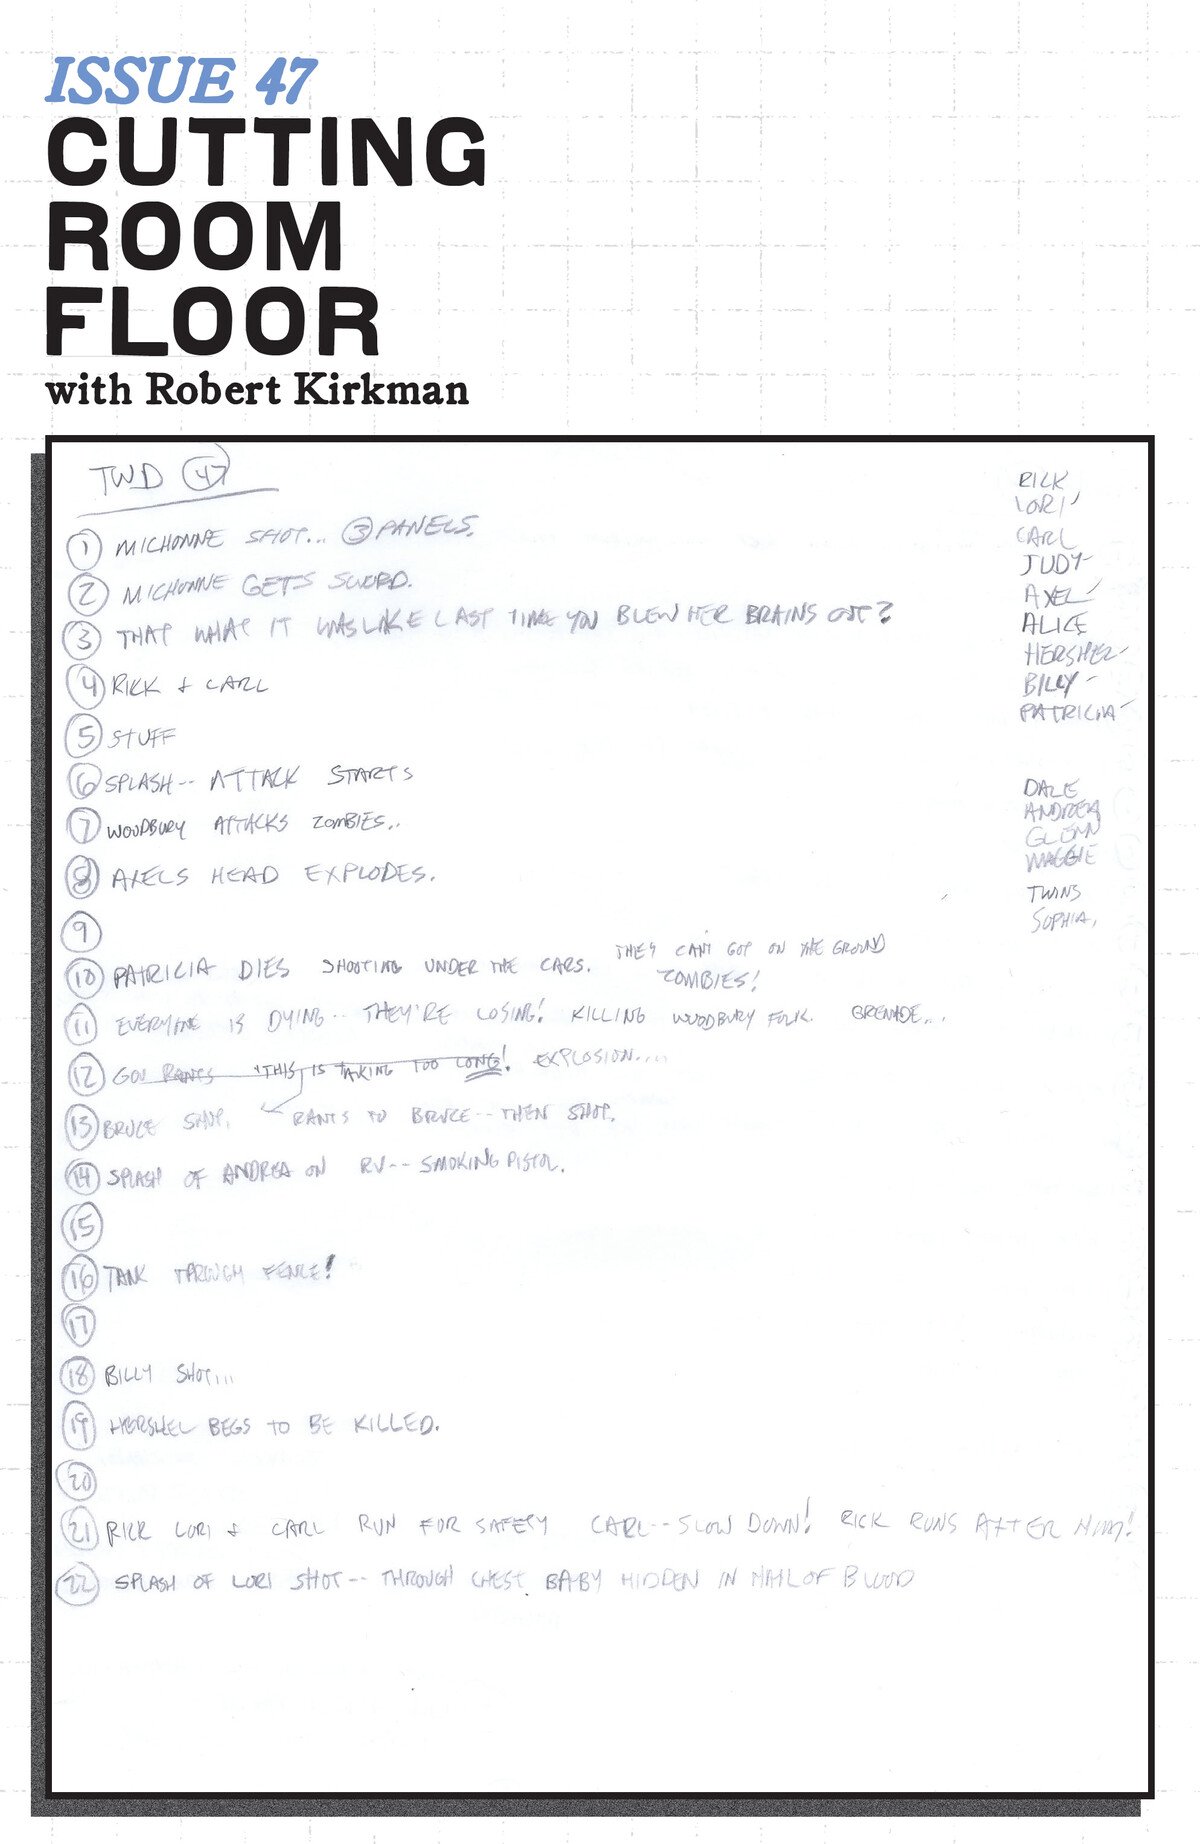 ISSUE 47
CUTTING
ROOM
FLOOR
with Robert Kirkman
TWD 47
1 MICHONNE SHOT... 3 PANELS.
2 MICHONNE GETS SWORD.
3 THAT WHAT IT WAS LIKE LAST TIME YOU BLEW HER BRAINS OUT?
4 RICK & CARL
5 STUFF
6 SPLASH-- ATTACK STARTS
7 WOODBURY ATTACKS ZOMBIES..
8 AXELS HEAD EXPLODES.
9
10 PATRICIA DIES SHOOTING UNDER THE CARS. THEY CAN'T GET ON THE GROUND
ZOMBIES!
11 EVERYONE IS DYING-- THEY'RE LOSING! KILLING WOODBURY FOLK. GRENADE...
12 GOV RANTS "THIS IS TAKING TOO LONG! EXPLOSION....
13 BRUCE SHOT. RANTS TO BRUCE-- THEN SHOT.
14 SPLASH OF ANDREA ON RV-- SMOKING PISTOL.
15
16 TANK THROUGH FENCE!
17
18 BILLY SHOT...
19 HERSHEL BEGS TO BE KILLED.
20
21 RICK LORI & CARL RUN FOR SAFETY CARL-- SLOW DOWN! RICK RUNS AFTER HIM!
22 SPLASH OF LORI SHOT-- THROUGH CHEST. BABY HIDDEN IN HAIL OF BLOOD
RICK
LORI
CARL
JUDY
AXEL
ALICE
HERSHEL
BILLY
PATRICIA
DALE
ANDREA
GLENN
MAGGIE
TWINS
SOPHIA.